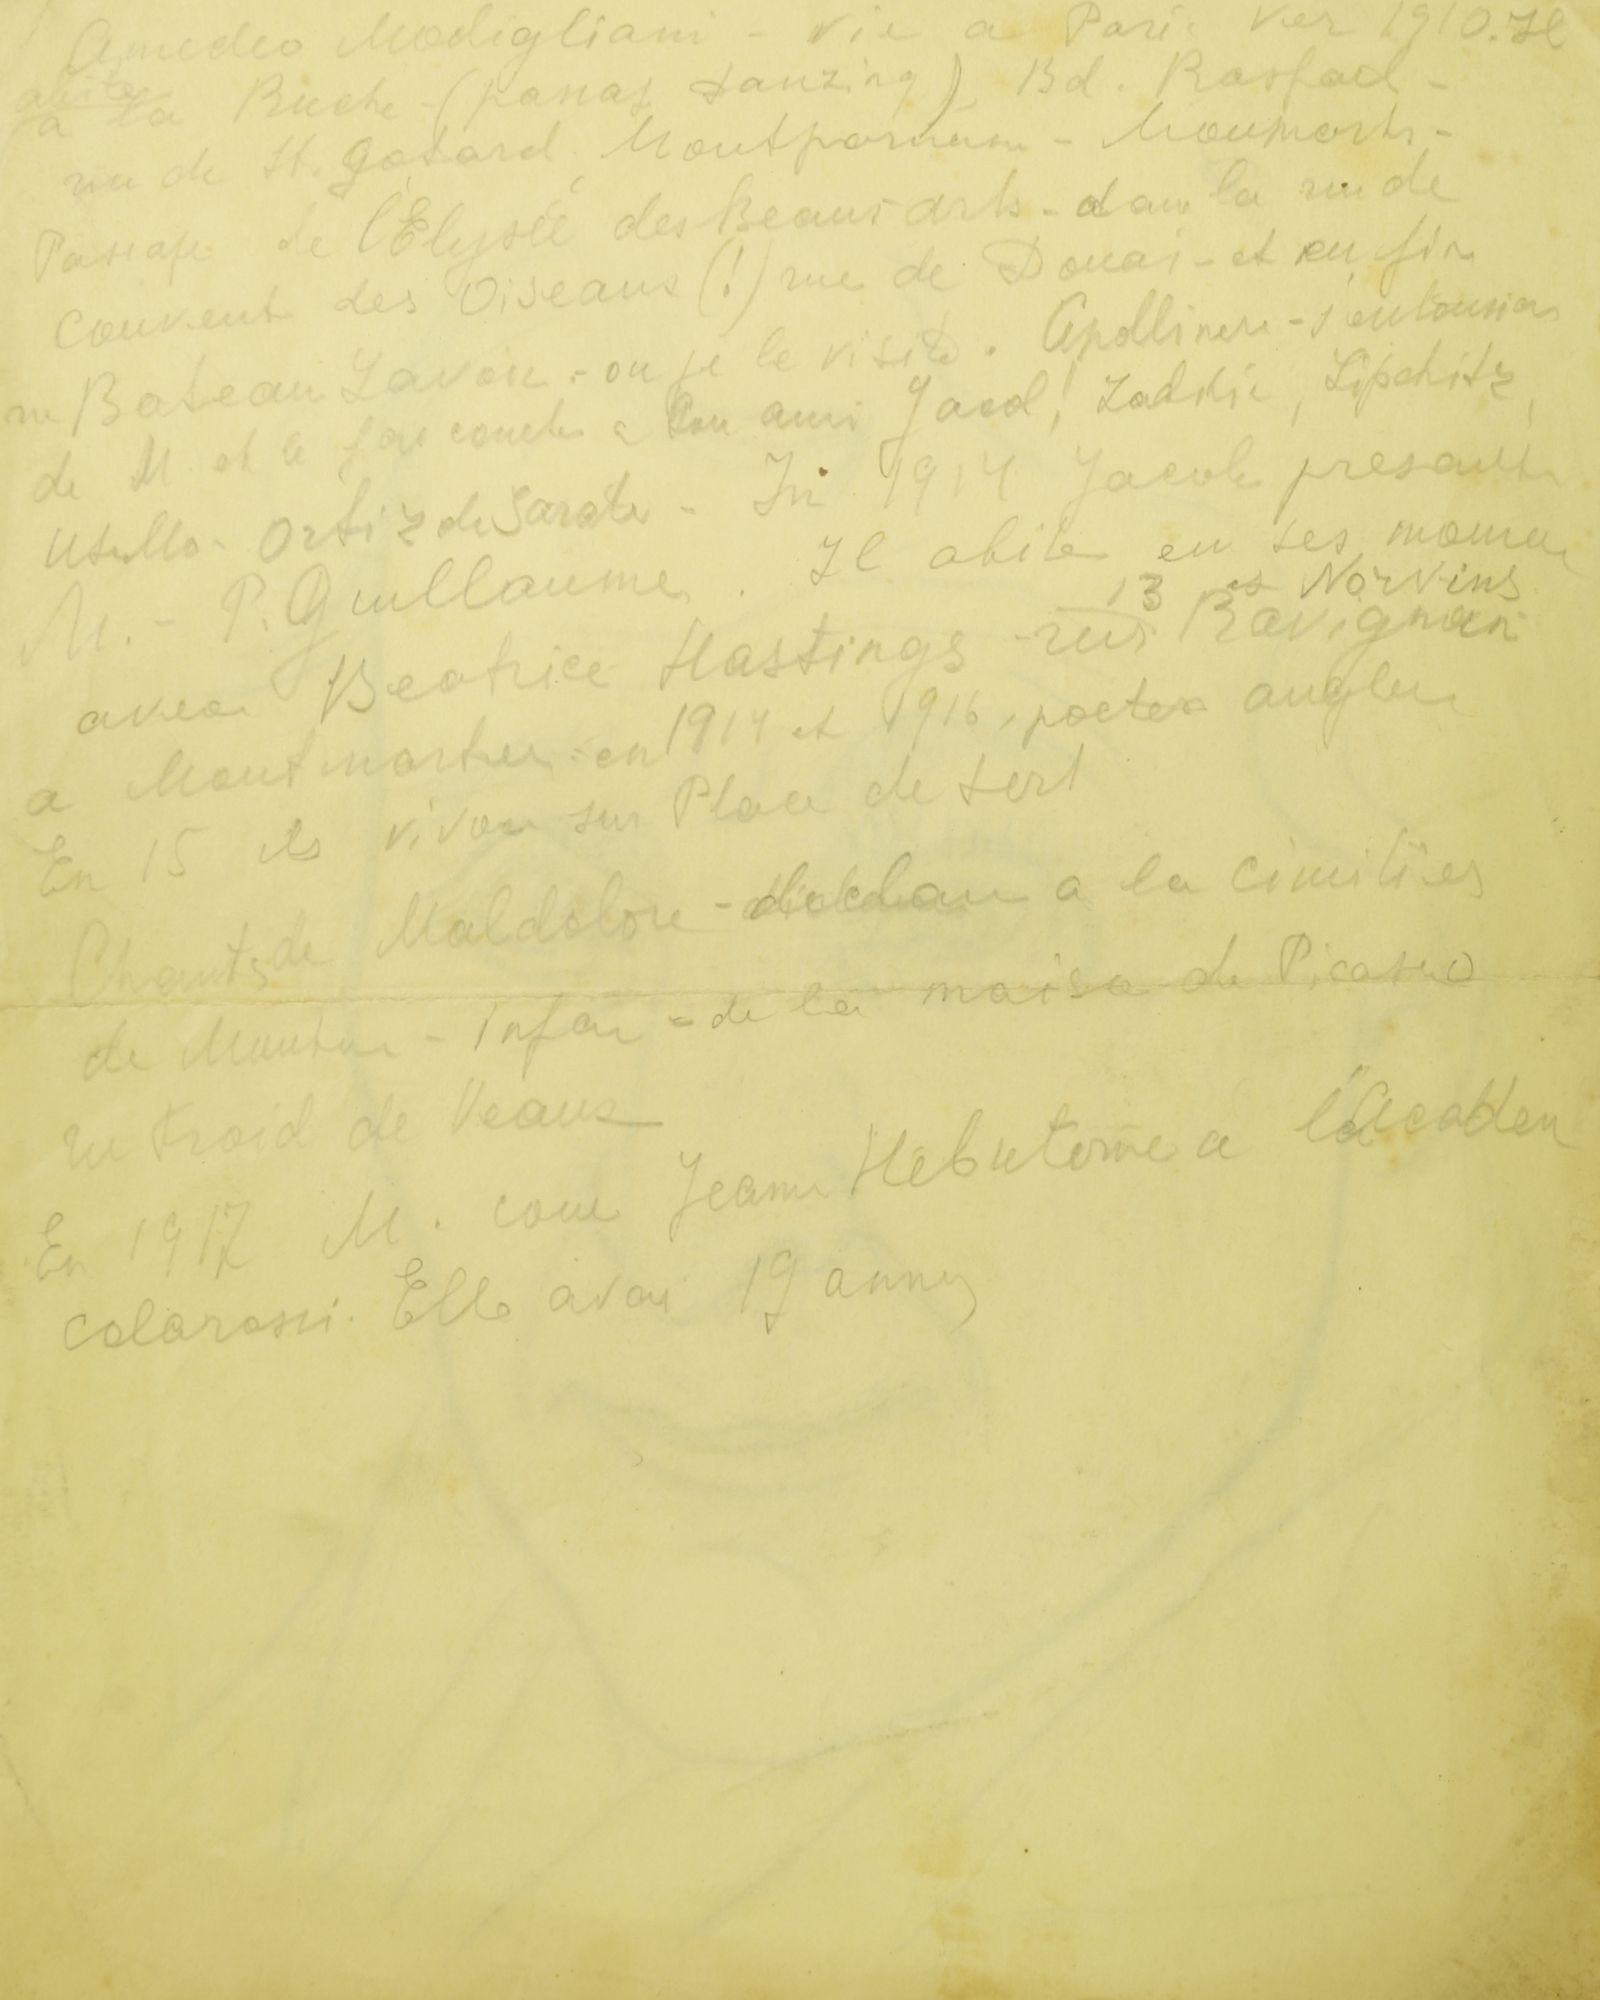 Amedeo Modigliani - vie a Paris ver 1910. Il
abite
a la Ruche - (passag Danzing) Bd. Raspad -
rue de St. Gotard Montparnasse - Monmartr -
Passage de l'Elysée des Beaus arts - dans la rue de
Couvent des Oiseaus (!) rue de Douai - et en fin
rue Bateau Lavoir - ou je le visite. Apollinere - s'entousias
de M et le fai a Son ami Jacob, Zadkie, Lipchitz,
Utrillo - Ortiz de Sarate - In 1914 Jacob presante
M. - P. Guillaume. Il abite en ses momen
avec Beatrice Hastings - rue 13 Ravignan et Norvins
a Montmartre - en 1914 et 1916, poetes anglese
En 15 ils vivou sur Place de tert
Chants de Maldolore - a la cimities
de - Infan - de la maiso de Picasso
rue Froid de Veaus
En 1917 M. cone Jeanne Hébuterne a l'Academ
Colarossi. Elle avai 19 annes